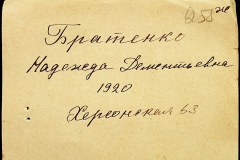 Братенко
Надежда Дементьевна
1920
Херсонская 63